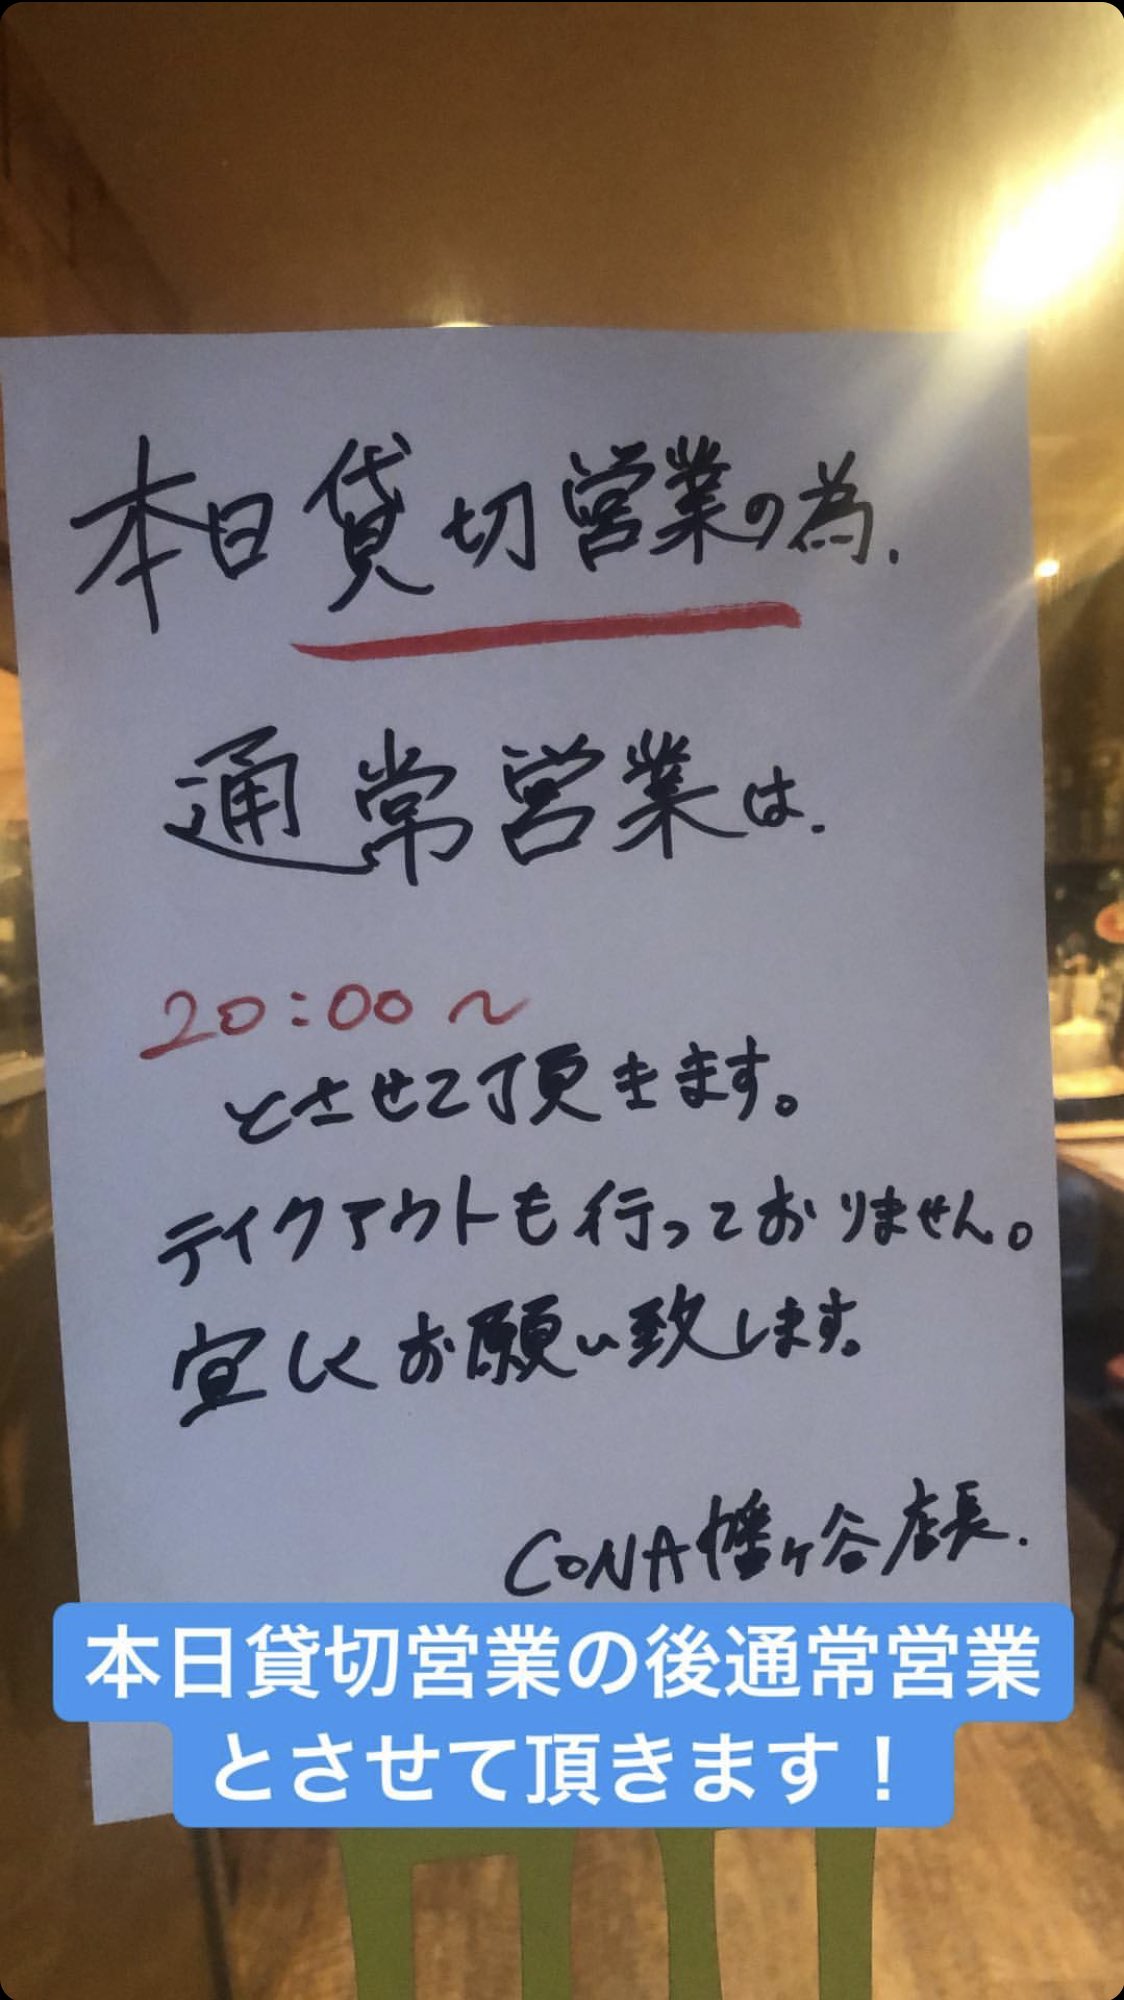 本日貸切営業の為.
通常営業は.
20:00～
とさせて頂きます。
テイクアウトも行っておりません。
宜しくお願い致します。
CONA幡ヶ谷店長.
本日貸切営業の後通常営業
とさせて頂きます！